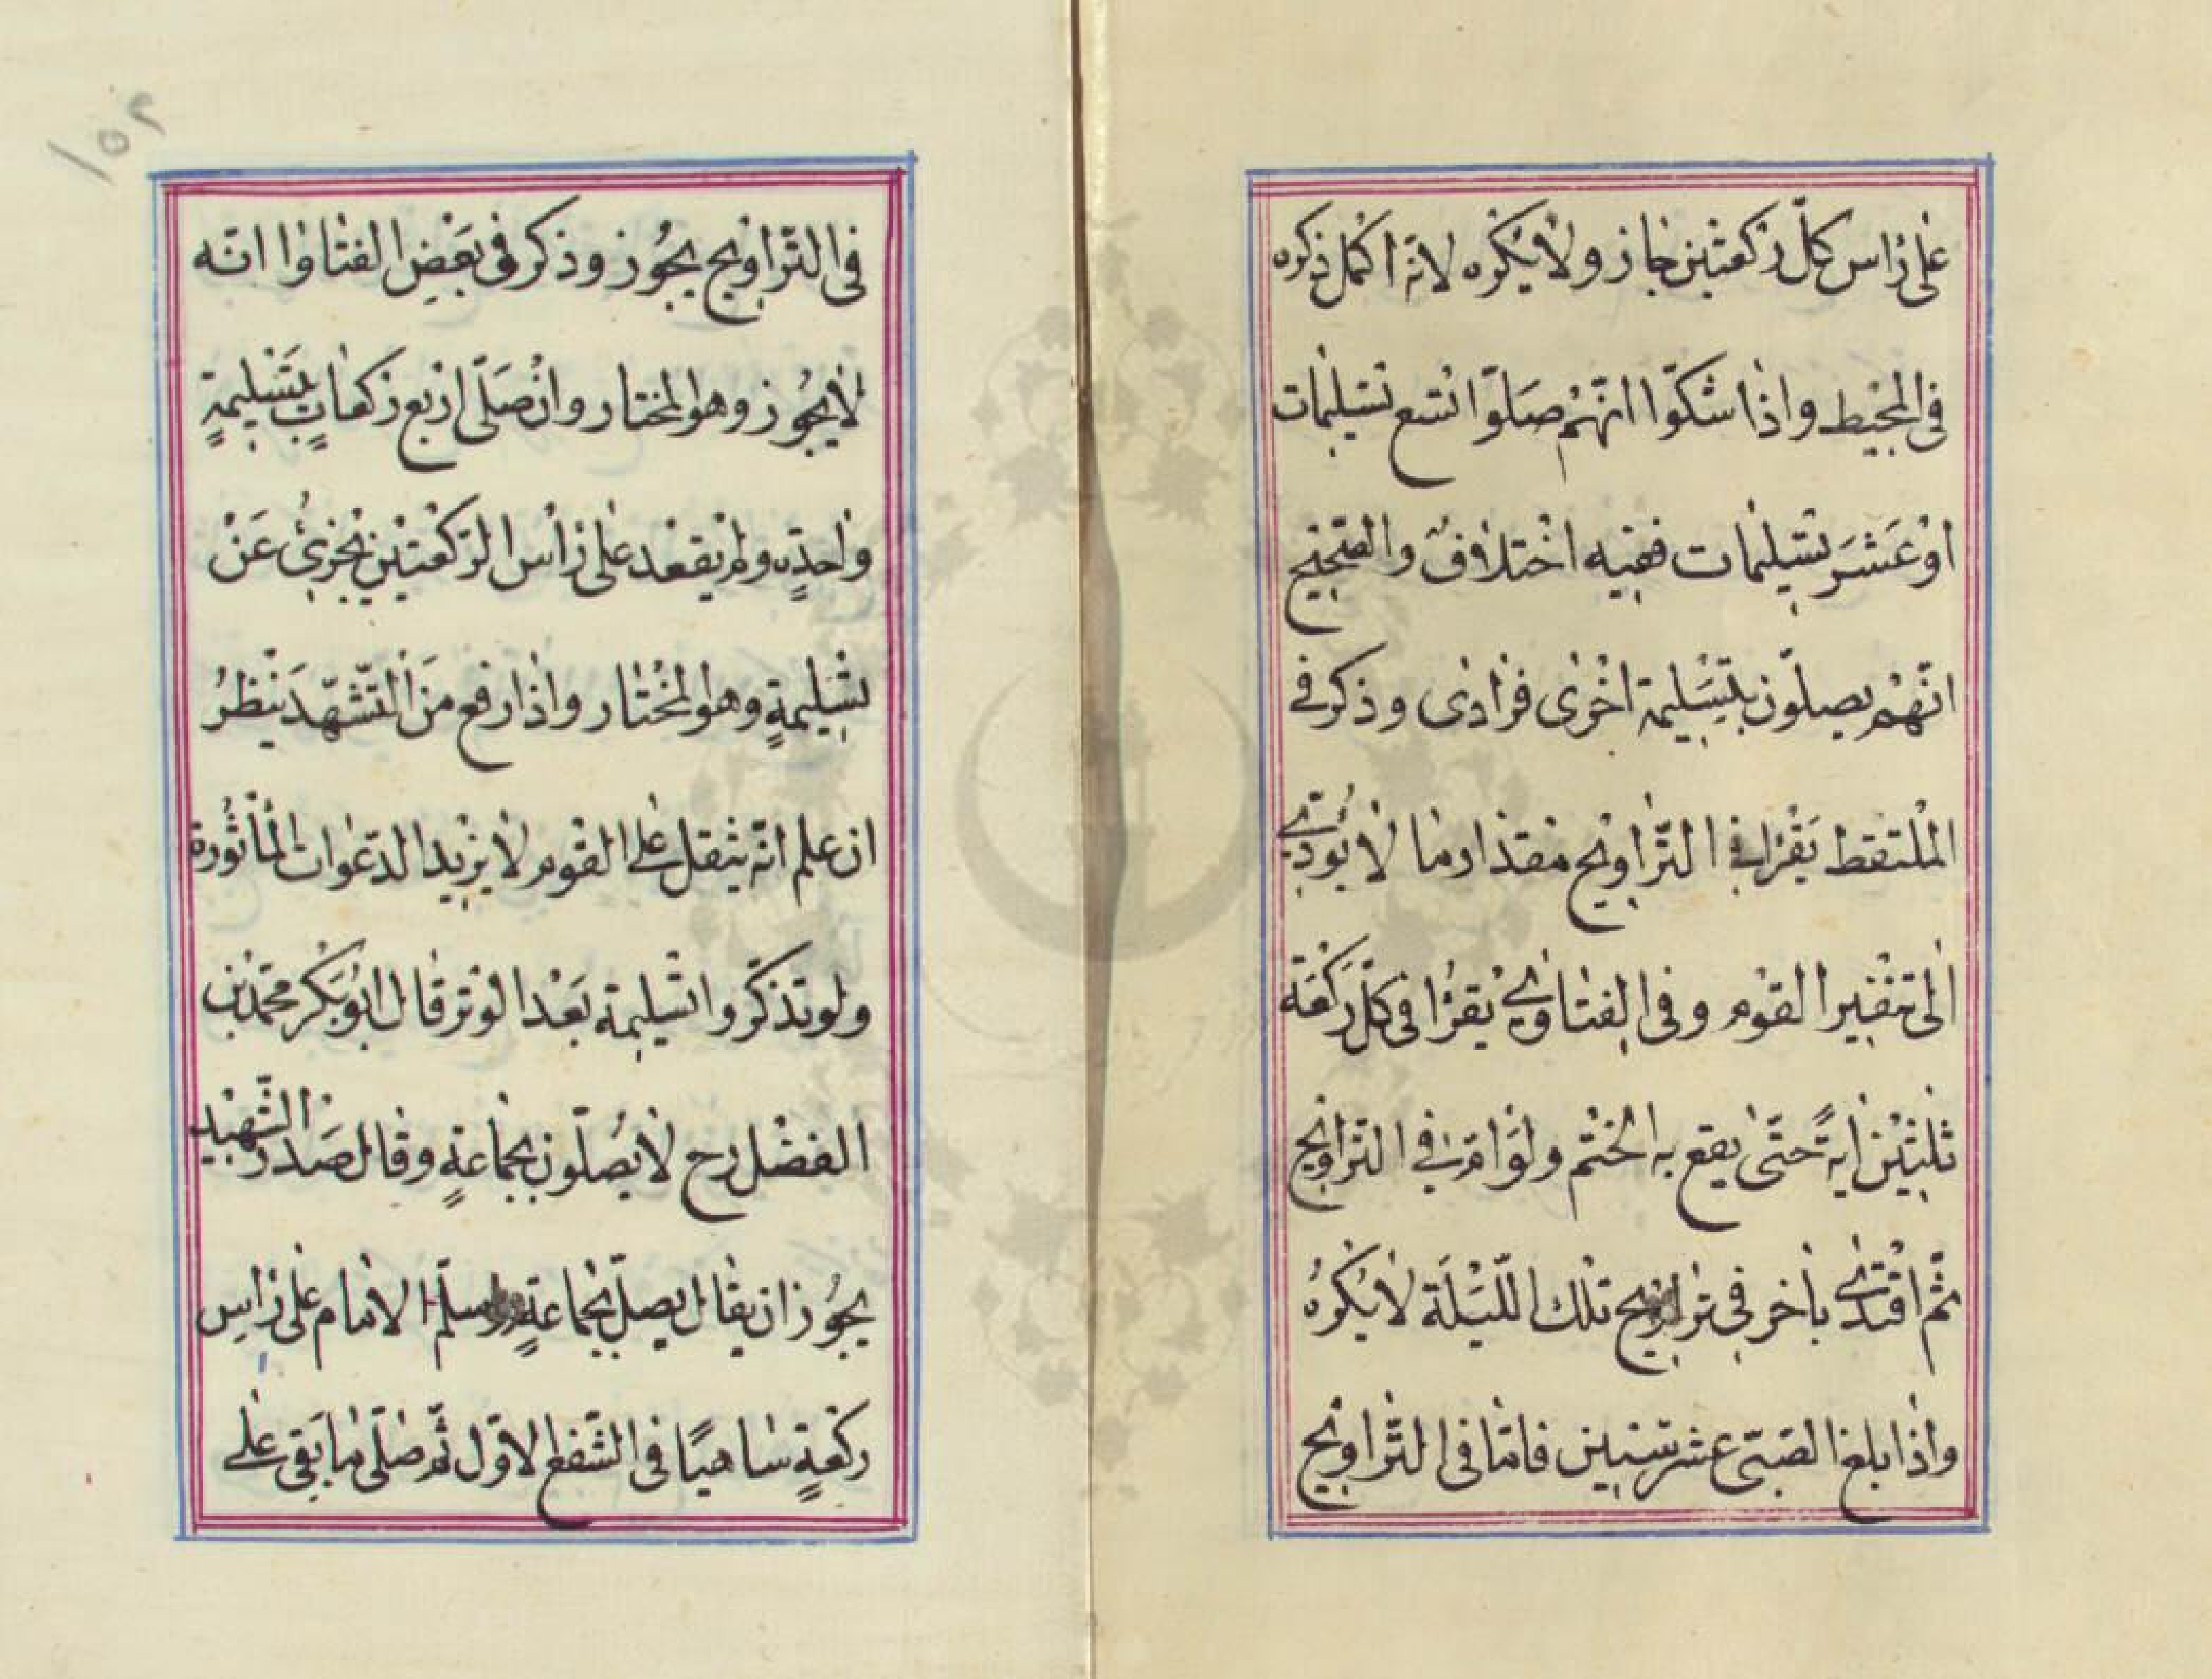 على راس كلّ ركعتين جاز ولا يكره لانه اكمل ذكره
فى المحيط واذا شكّوا انّهم صلّوا تسع تسليمات
او عشر تسليمات ففيه اختلاف والصّحيح
انّهم يصلّون بتسليمة اخرى فرادى وذكر فى
الملتقط يقرا فى التّراويح مقدار ما لا يؤدّى
الى تنفير القوم وفى الفتاوى يقرا فى كلّ ركعة
ثلثين اية حتّى يقع به الختم ولو امّ فى التراويح
ثمّ اقتدى باخر فى تراويح تلك اللّيلة لا يكره
واذا بلغ الصّبىّ عشر سنين فامّا فى التّراويح
١٥٢
فى التّراويح يجوز وذكر فى بعض الفتاوا انّه
لا يجوز وهو المختار وان صلّى اربع ركعات بتسليمة
واحدة ولم يقعد على رأس الرّكعتين يجزئ عن
تسليمة وهو المختار واذا رفع من التّشهّد ينظر
ان علم انّه يثقل على القوم لا يزيد الدّعوات المأثورة
ولو تذكّروا تسليمة بعد الوتر قال ابو بكر محمّد بن
الفضل رح لا يصلّون بجماعة وقال صدر الشّهيد
يجوز ان يقال يصلّ بجماعة سلّم الامام على راس
ركعة ساهيًا فى الشّفع الاوّل ثمّ صلّى ما بقى على